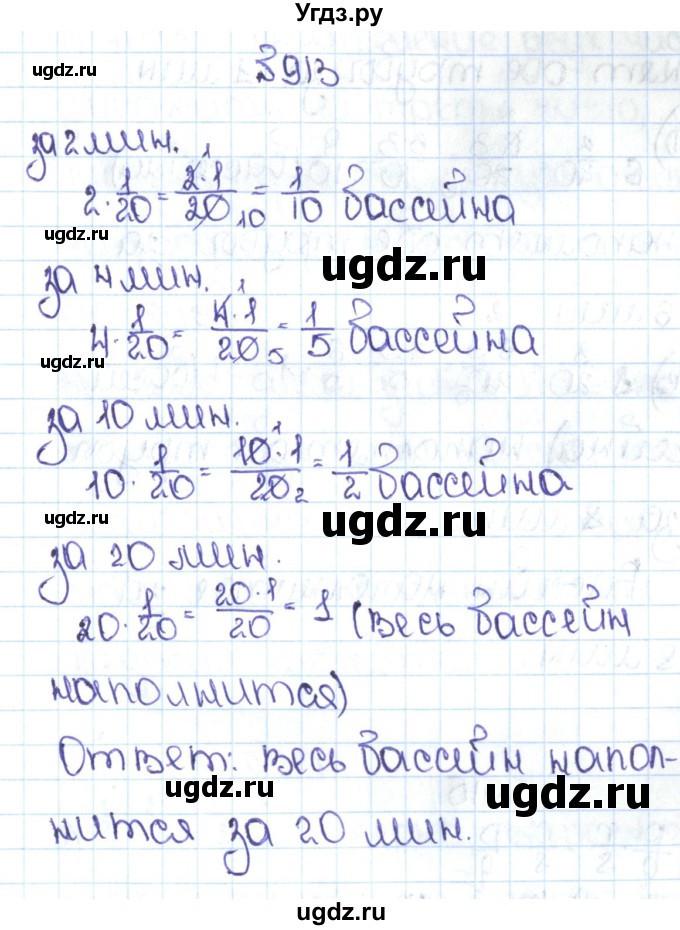 Угдз.ру
ugdz.ru
№913
за 2 мин.
2 · 1/20 = 2·1/20 = 1/10 бассейна
1
10
ugdz.ru
ugdz.ru
за 4 мин.
4 · 1/20 = 4·1/20 = 1/5 бассейна
1
5
ugdz.ru
за 10 мин.
10 · 1/20 = 10·1/20 = 1/2 бассейна
1
2
ugdz.ru
ugdz.ru
за 20 мин.
20 · 1/20 = 20·1/20 = 1 (весь бассейн
ugdz.ru
наполнится)
Ответ: весь бассейн напол-
ugdz.ru
ugdz.ru
нится за 20 мин.
ugdz.ru
ugdz.ru